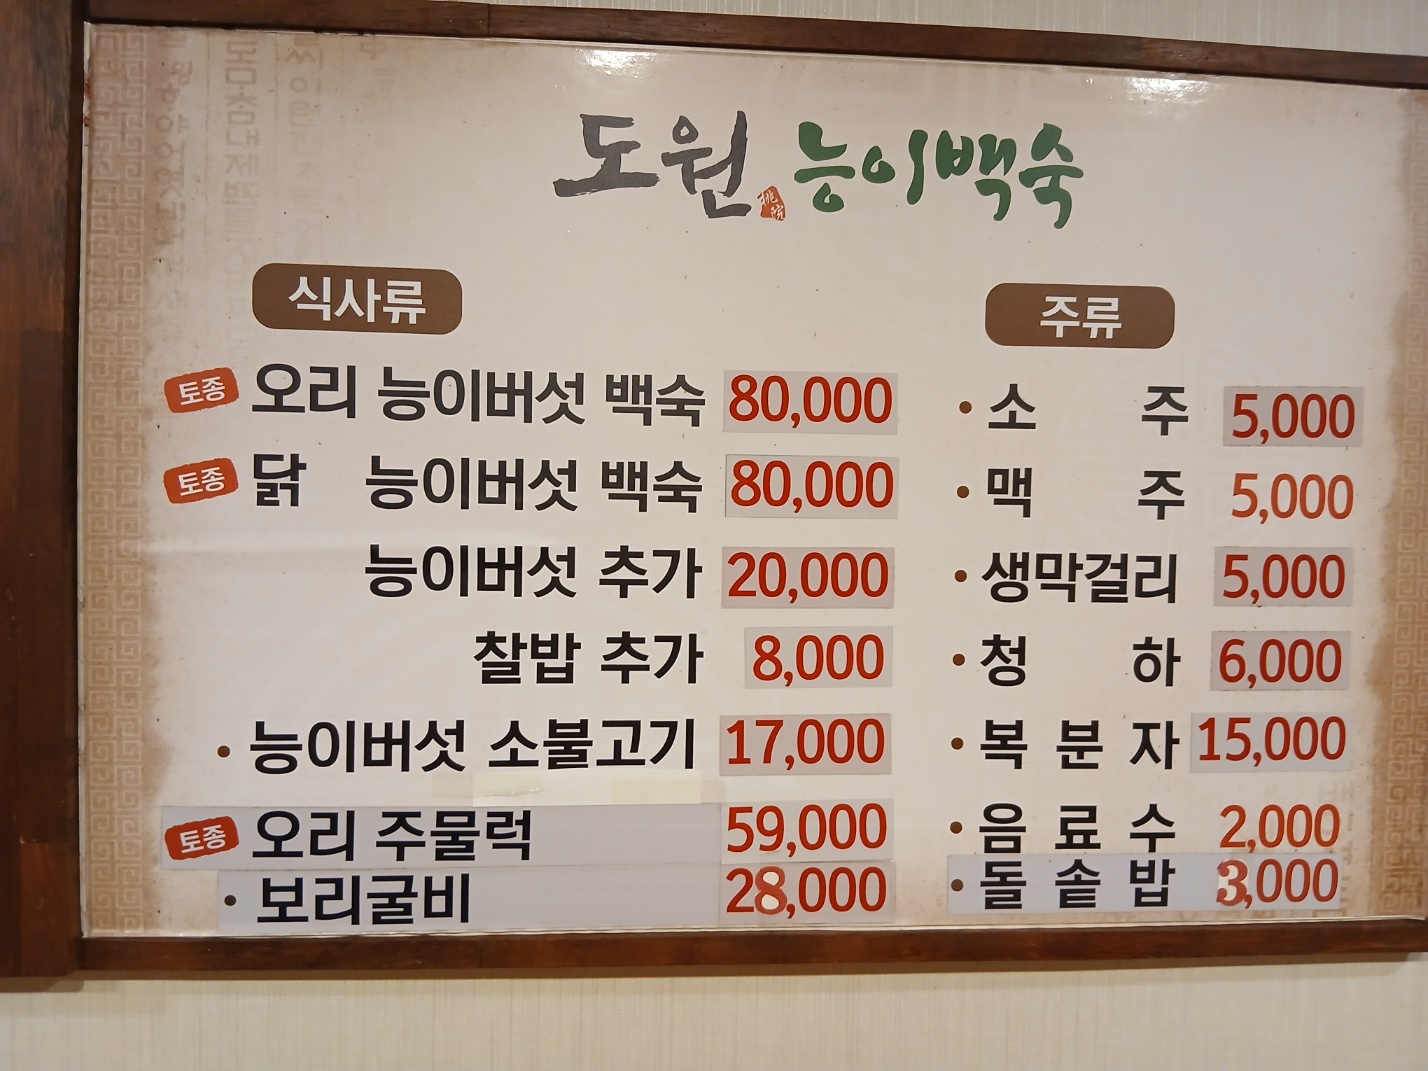 도원 능이백숙
식사류
토종 오리 능이버섯 백숙 80,000
토종 닭 능이버섯 백숙 80,000
능이버섯 추가 20,000
찰밥 추가 8,000
· 능이버섯 소불고기 17,000
토종 오리 주물럭 59,000
· 보리굴비 28,000
주류
· 소 주 5,000
· 맥 주 5,000
· 생막걸리 5,000
· 청 하 6,000
· 복 분 자 15,000
· 음 료 수 2,000
· 돌 솥 밥 3,000